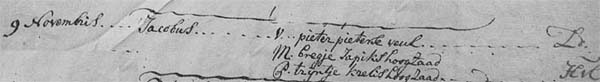 9 Novembris.... Jacobus.... V. pieter pieterse veul
M. bregje Tapiks hoogzaad
G. trijntje krelis hoogzaad